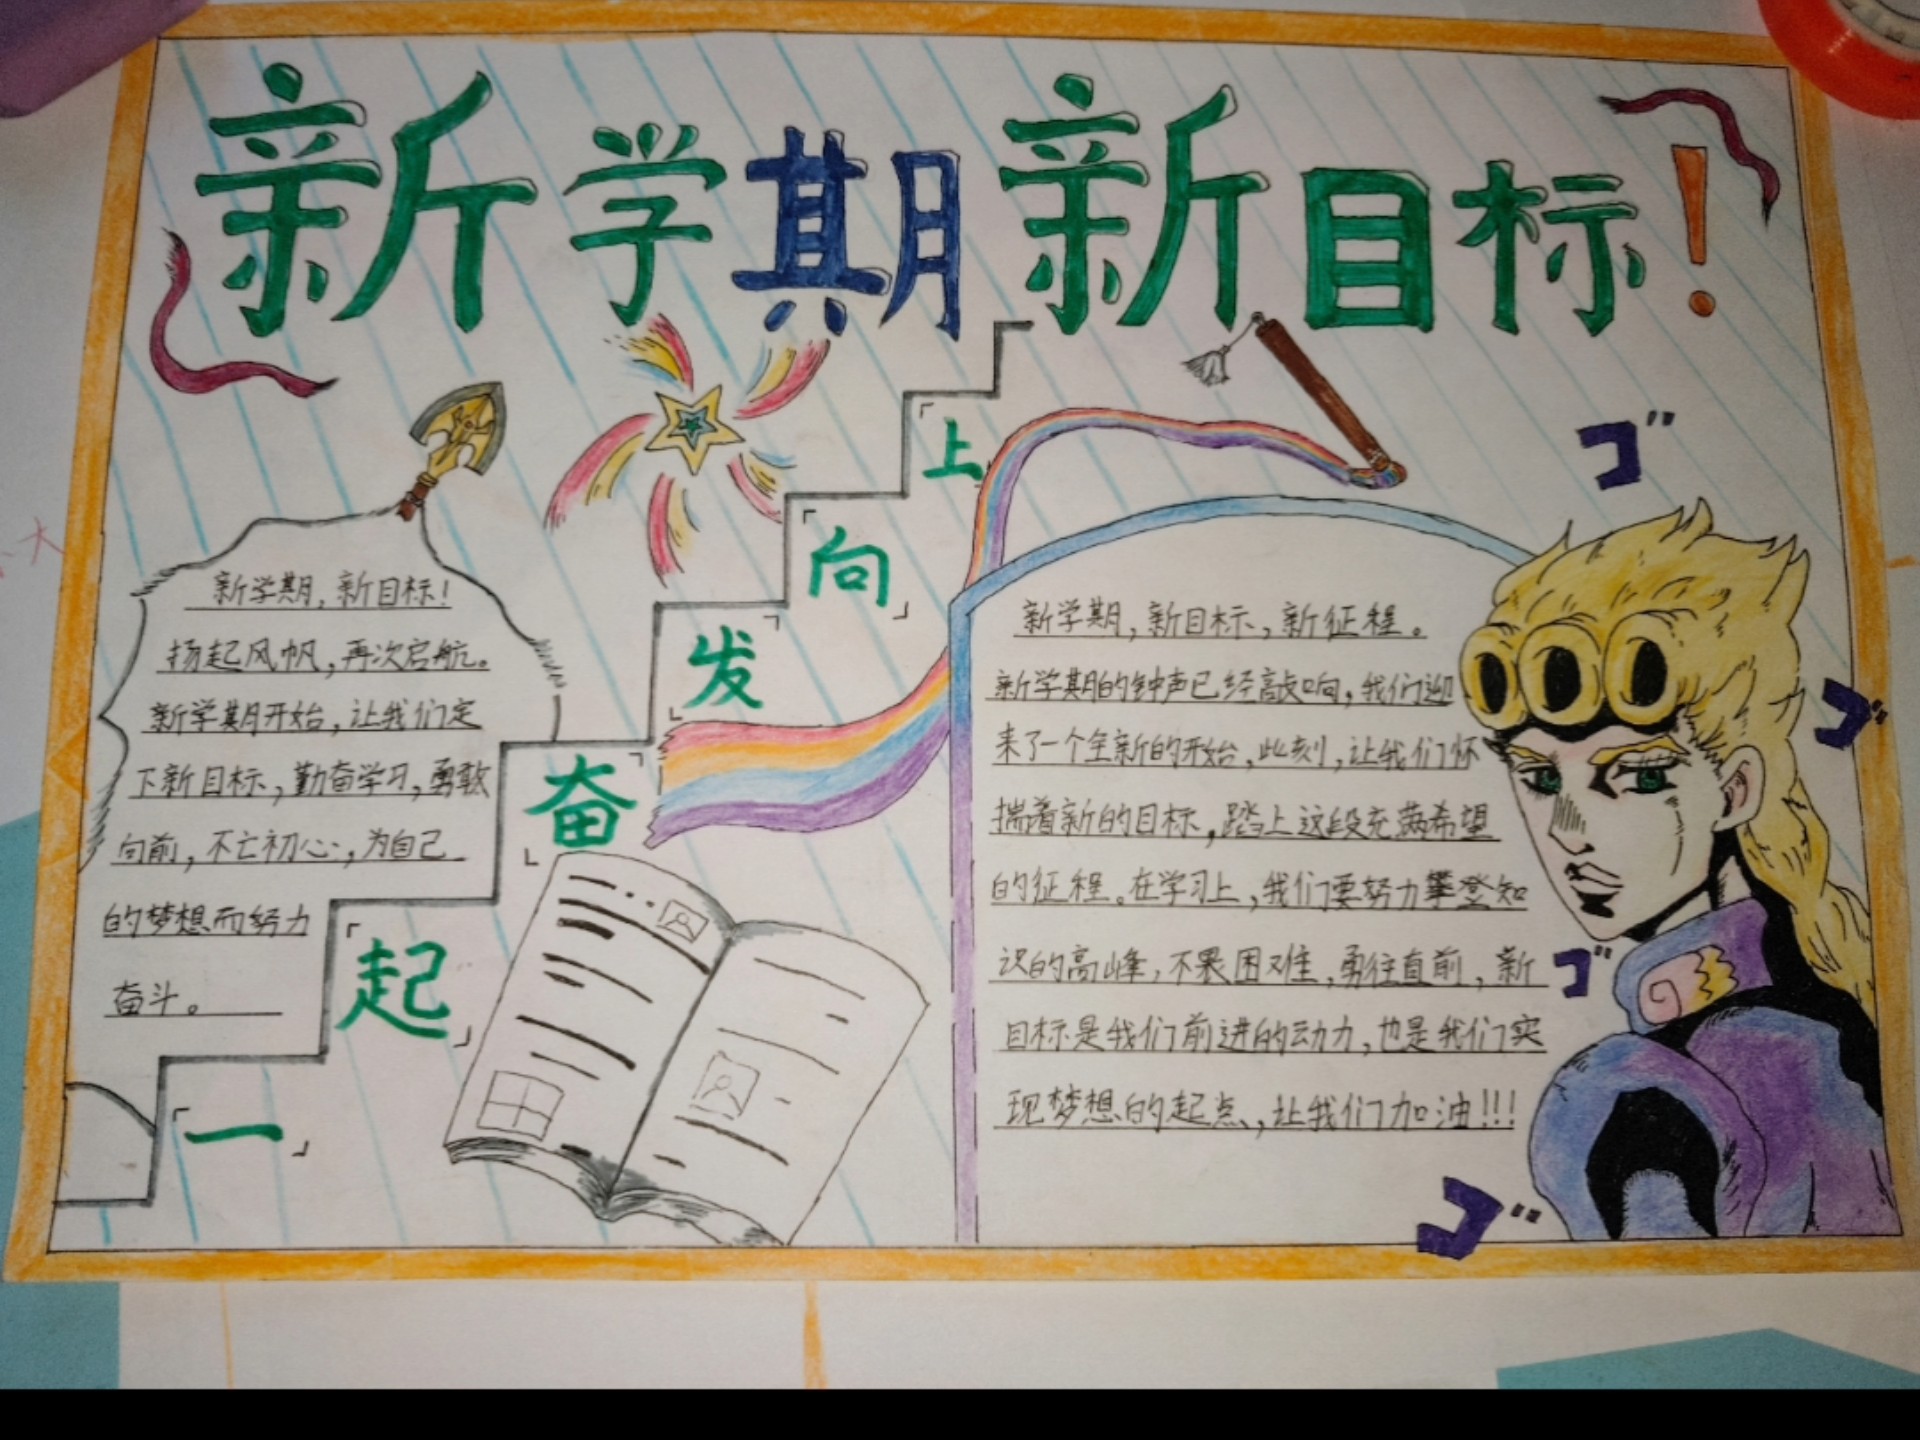 新学期新目标!
新学期,新目标!
扬起风帆,再次启航。
新学期开始,让我们定
下新目标,勤奋学习,勇敢
向前,不亡初心,为自己
的梦想而努力
奋斗。
一
起
奋
发
向
上
新学期,新目标,新征程。
新学期的钟声已经敲响,我们迎
来了一个全新的开始,此刻,让我们怀
揣着新的目标,踏上这段充满希望
的征程。在学习上,我们要努力攀登知
识的高峰,不畏困难,勇往直前,新
目标是我们前进的动力,也是我们实
现梦想的起点,让我们加油!!!
ゴ
ゴ
ゴ
ゴ